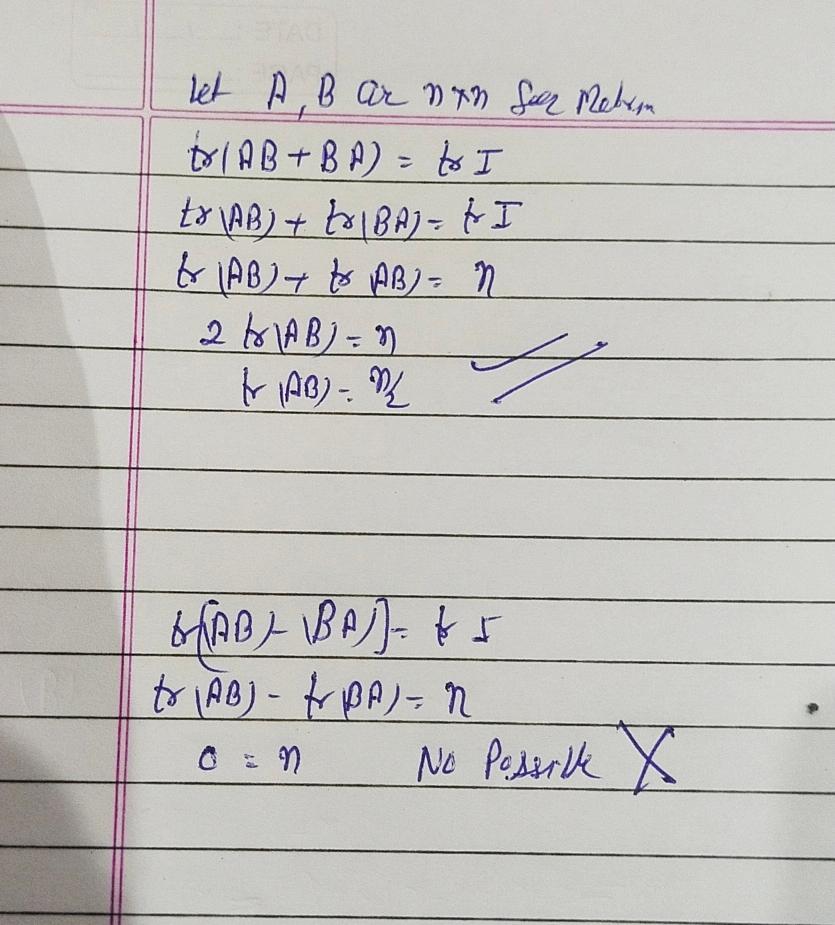 let A, B are n×n
tr(AB + BA) = tr I
tr(AB) + tr(BA) = tr I
tr(AB) + tr(AB) = n
2 tr(AB) = n
tr(AB) = n/2
tr[(AB) - (BA)] = tr I
tr(AB) - tr(BA) = n
0 = n No Possible X